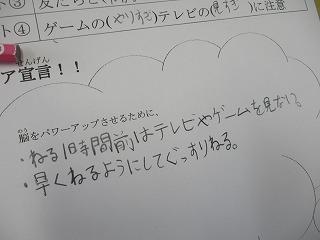 ト③ 友だちと
ト④ ゲームの(やりすぎ)テレビの(見すぎ)に注意
げん
ア宣言！！
のう
脳をパワーアップさせるために、
・ねる1時間前はテレビやゲームを見ない。
・早くねるようにしてぐっすりねる。